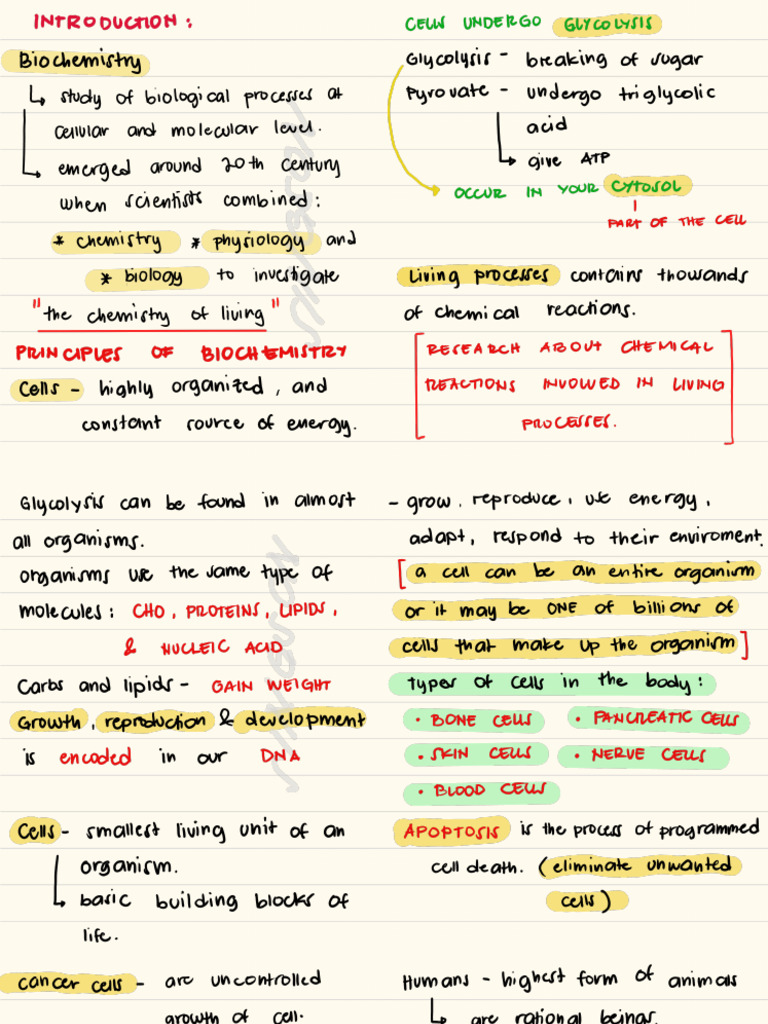 INTRODUCTION:
Biochemistry
study of biological processes at
cellular and molecular level.
emerged around 20th century
when scientists combined:
* chemistry * physiology and
* biology to investigate
"the chemistry of living"
PRINCIPLES OF BIOCHEMISTRY
Cells - highly organized, and
constant source of energy.
CELLS UNDERGO GLYCOLYSIS
Glycolysis - breaking of sugar
Pyrovate - undergo triglycolic
acid
give ATP
OCCUR IN YOUR CYTOSOL
PART OF THE CELL
Living processes contains thowands
of chemical reactions.
[RESEARCH ABOUT CHEMICAL
REACTIONS INVOWED IN LIVING
PROCESSES.]
Glycolysis can be found in almost
all organisms.
organisms use the same type of
molecules: CHO, PROTEINS, LIPIDS,
& NUCLEIC ACID
Carbs and lipids - GAIN WEIGHT
Growth, reproduction & development
is encoded in our DNA
- grow, reproduce, use energy,
adapt, respond to their enviroment.
[a cell can be an entire organism
or it may be ONE of billions of
cells that make up the organism]
types of cells in the body:
• BONE CELLS • PANCREATIC CELLS
• SKIN CELLS • NERVE CELLS
• BLOOD CELLS
Cells - smallest living unit of an
organism.
basic building blocks of
life.
cancer cells - are uncontrolled
growth of cell.
APOPTOSIS is the process of programmed
cell death. (eliminate unwanted
cells)
Humans - highest form of animals
are rational beings.